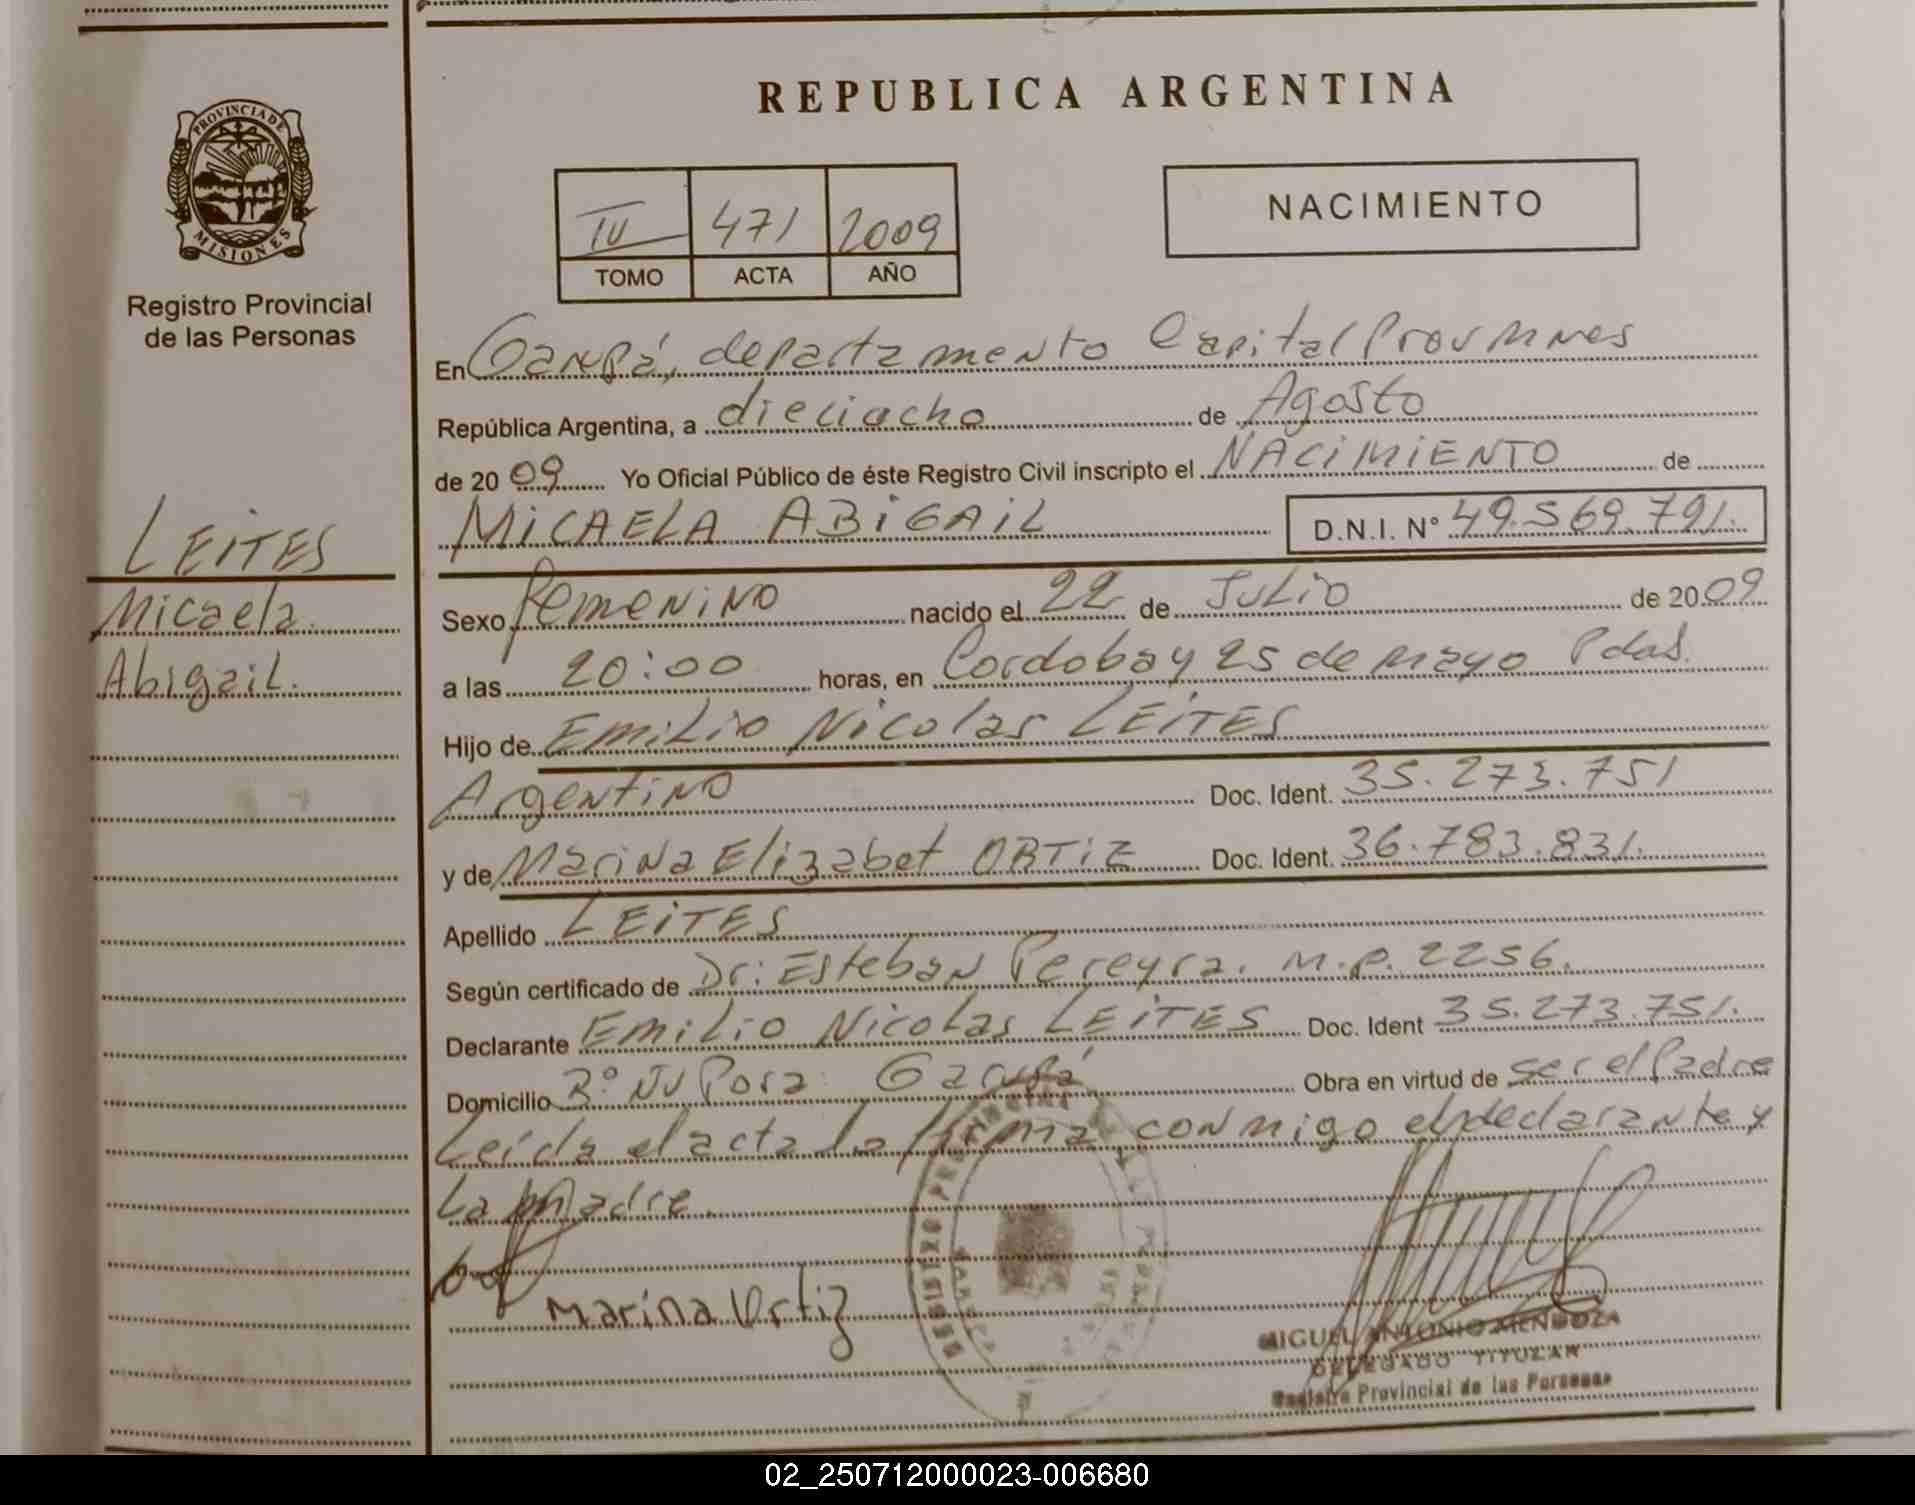 PROVINCIA DE
MISIONES
Registro Provincial
de las Personas
LEITES
Micaela
Abigail.
REPUBLICA ARGENTINA
IV 471 2009
TOMO ACTA AÑO
NACIMIENTO
En Garupá, departamento Capital Prov Mnes
República Argentina, a dieciocho de Agosto
de 2009 Yo Oficial Público de éste Registro Civil inscripto el NACIMIENTO de
MICAELA ABIGAIL D.N.I. N° 49.569.791.
Sexo femenino nacido el 22 de Julio de 2009
a las 20:00 horas, en Cordoba y 25 de mayo Pdas.
Hijo de Emilio Nicolas LEITES
Argentino Doc. Ident. 35.273.751
y de Marina Elizabet ORTIZ Doc. Ident. 36.783.831.
Apellido LEITES
Según certificado de Dr: Esteban Pereyra. M.P. 2256.
Declarante Emilio Nicolas LEITES Doc. Ident 35.273.751.
Domicilio B° Ñu Pora Garupá Obra en virtud de ser el Padre
Leída el acta la firma conmigo el declarante y
La Madre.
Marina Ortiz
MIGUEL ANTONIO MENDOZA
DELEGADO TITULAR
Registro Provincial de las Personas
02_250712000023-006680